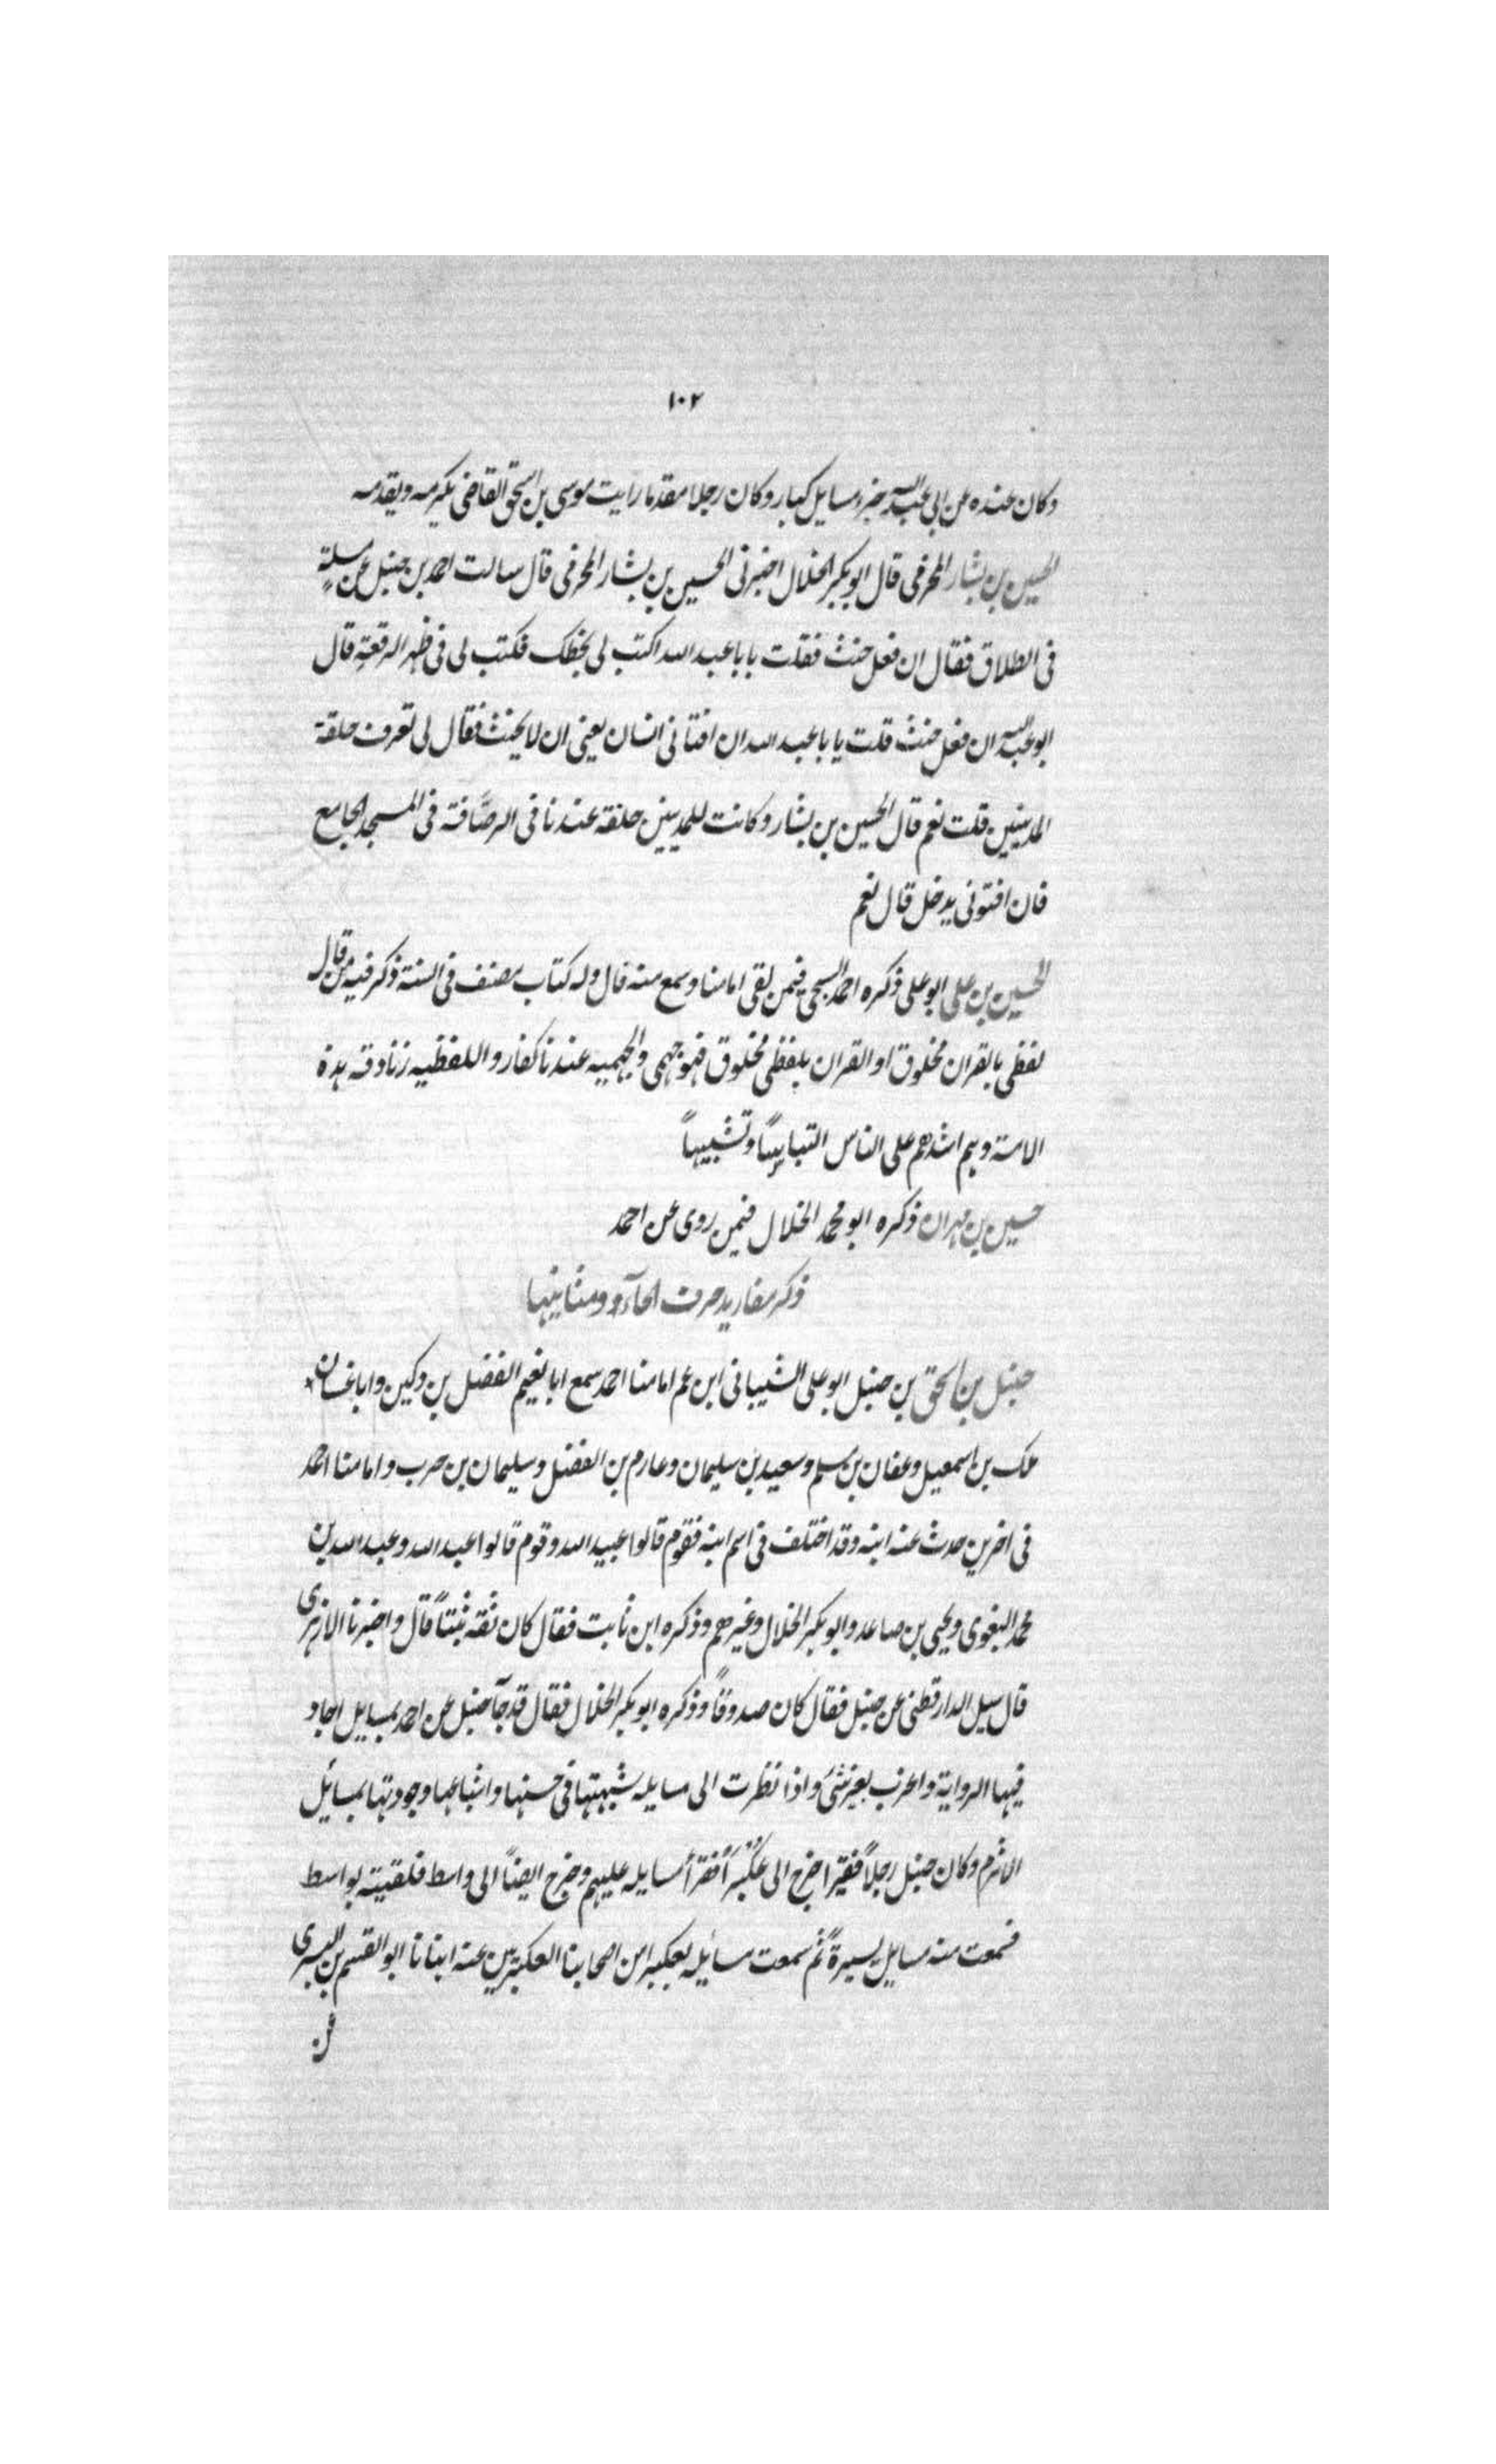 ١٠٢
وكان عنده عن ابى عبد الله جزء مسايل كبار وكان رجلا مقدما رايت موسى بن اسحق القاضى يكرمه ويقدمه
الحسين بن بشار المخرمى قال ابو بكر الخلال اخبرنى الحسين بن بشار المخرمى قال سالت احمد بن حنبل عن مسئلة
فى الطلاق فقال ان فعل حنث فقلت يابا عبد الله اكتب لى بخطك فكتب لى فى ظهر الرقعة قال
ابو عبد الله ان فعل حنث قلت يابا عبد الله ان افتانى انسان يعنى ان لا يحنث فقال لى تعرف حلقة
المدينيين قلت نعم قال الحسين بن بشار وكانت للمدينيين حلقة عندنا فى الرصافة فى المسجد الجامع
فان افتونى يدخل قال نعم
الحسين بن على ابو على ذكره احمد السبحى فيمن لقى امامنا وسمع منه قال وله كتاب مصنف فى السنة ذكر فيه من قال
لفظى بالقران مخلوق او القران بلفظى مخلوق فهو جهمى والجهميه عندنا كفار واللفظيه زنادقه هذه
الامة وهم اشدهم على الناس التباسًا وتشبيهاً
حسين بن مهران ذكره ابو محمد الخلال فيمن روى عن احمد
ذكر مفاريد حرف الحآء ومثانيها
حنبل بن اسحق بن حنبل ابو على الشيبانى ابن عم امامنا احمد سمع ابا نعيم الفضل بن دكين وابا غسان
ملك بن اسمعيل وعفان بن مسلم وسعيد بن سليمان وعارم بن الفضل وسليمان بن حرب وامامنا احمد
فى اخرين حدث عنه ابنه وقد اختلف فى اسم ابنه فقوم قالوا عبيد الله وقوم قالوا عبد الله وعبد الله بن
محمد البغوى ويحيى بن صاعد وابو بكر الخلال وغيرهم وذكره ابن ثابت فقال كان ثقة ثبتاً قال واخبرنا الازهرى
قال سيل الدارقطنى عن حنبل فقال كان صدوقاً وذكره ابو بكر الخلال فقال قد جآء حنبل عن احمد بمسايل اجاد
فيها الرواية واغرب بغير شئ واذا نظرت الى مسايله شبهتها فى حسنها واشباعها وجودتها بمسائل
الاثرم وكان حنبل رجلاً فقيرا خرج الى عُكْبُرَا فقرأ مسايله عليهم وخرج ايضاً الى واسط فلقيته بواسط
فسمعت منه مسايل يسيرةً ثم سمعت مسائله بعكبرا من اصحابنا العكبريين عنه انبانا ابو القسم بن البسرى